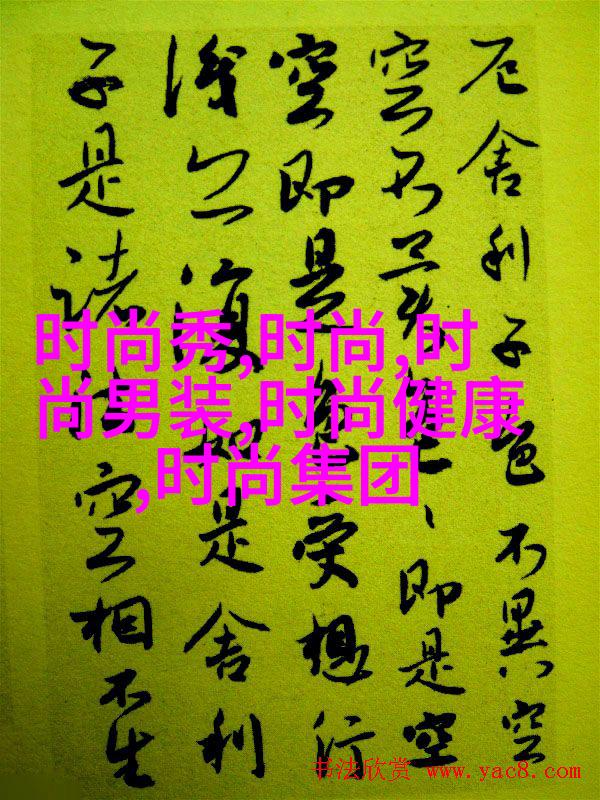 厄舍利子色不異空
空不異色、即是空
空即是色受想行
識亦復如是舍利
子是諸法空相不生
时尚秀,时尚,时
尚男装,时尚健康
,时尚集团
书法欣赏 www.yac8.com